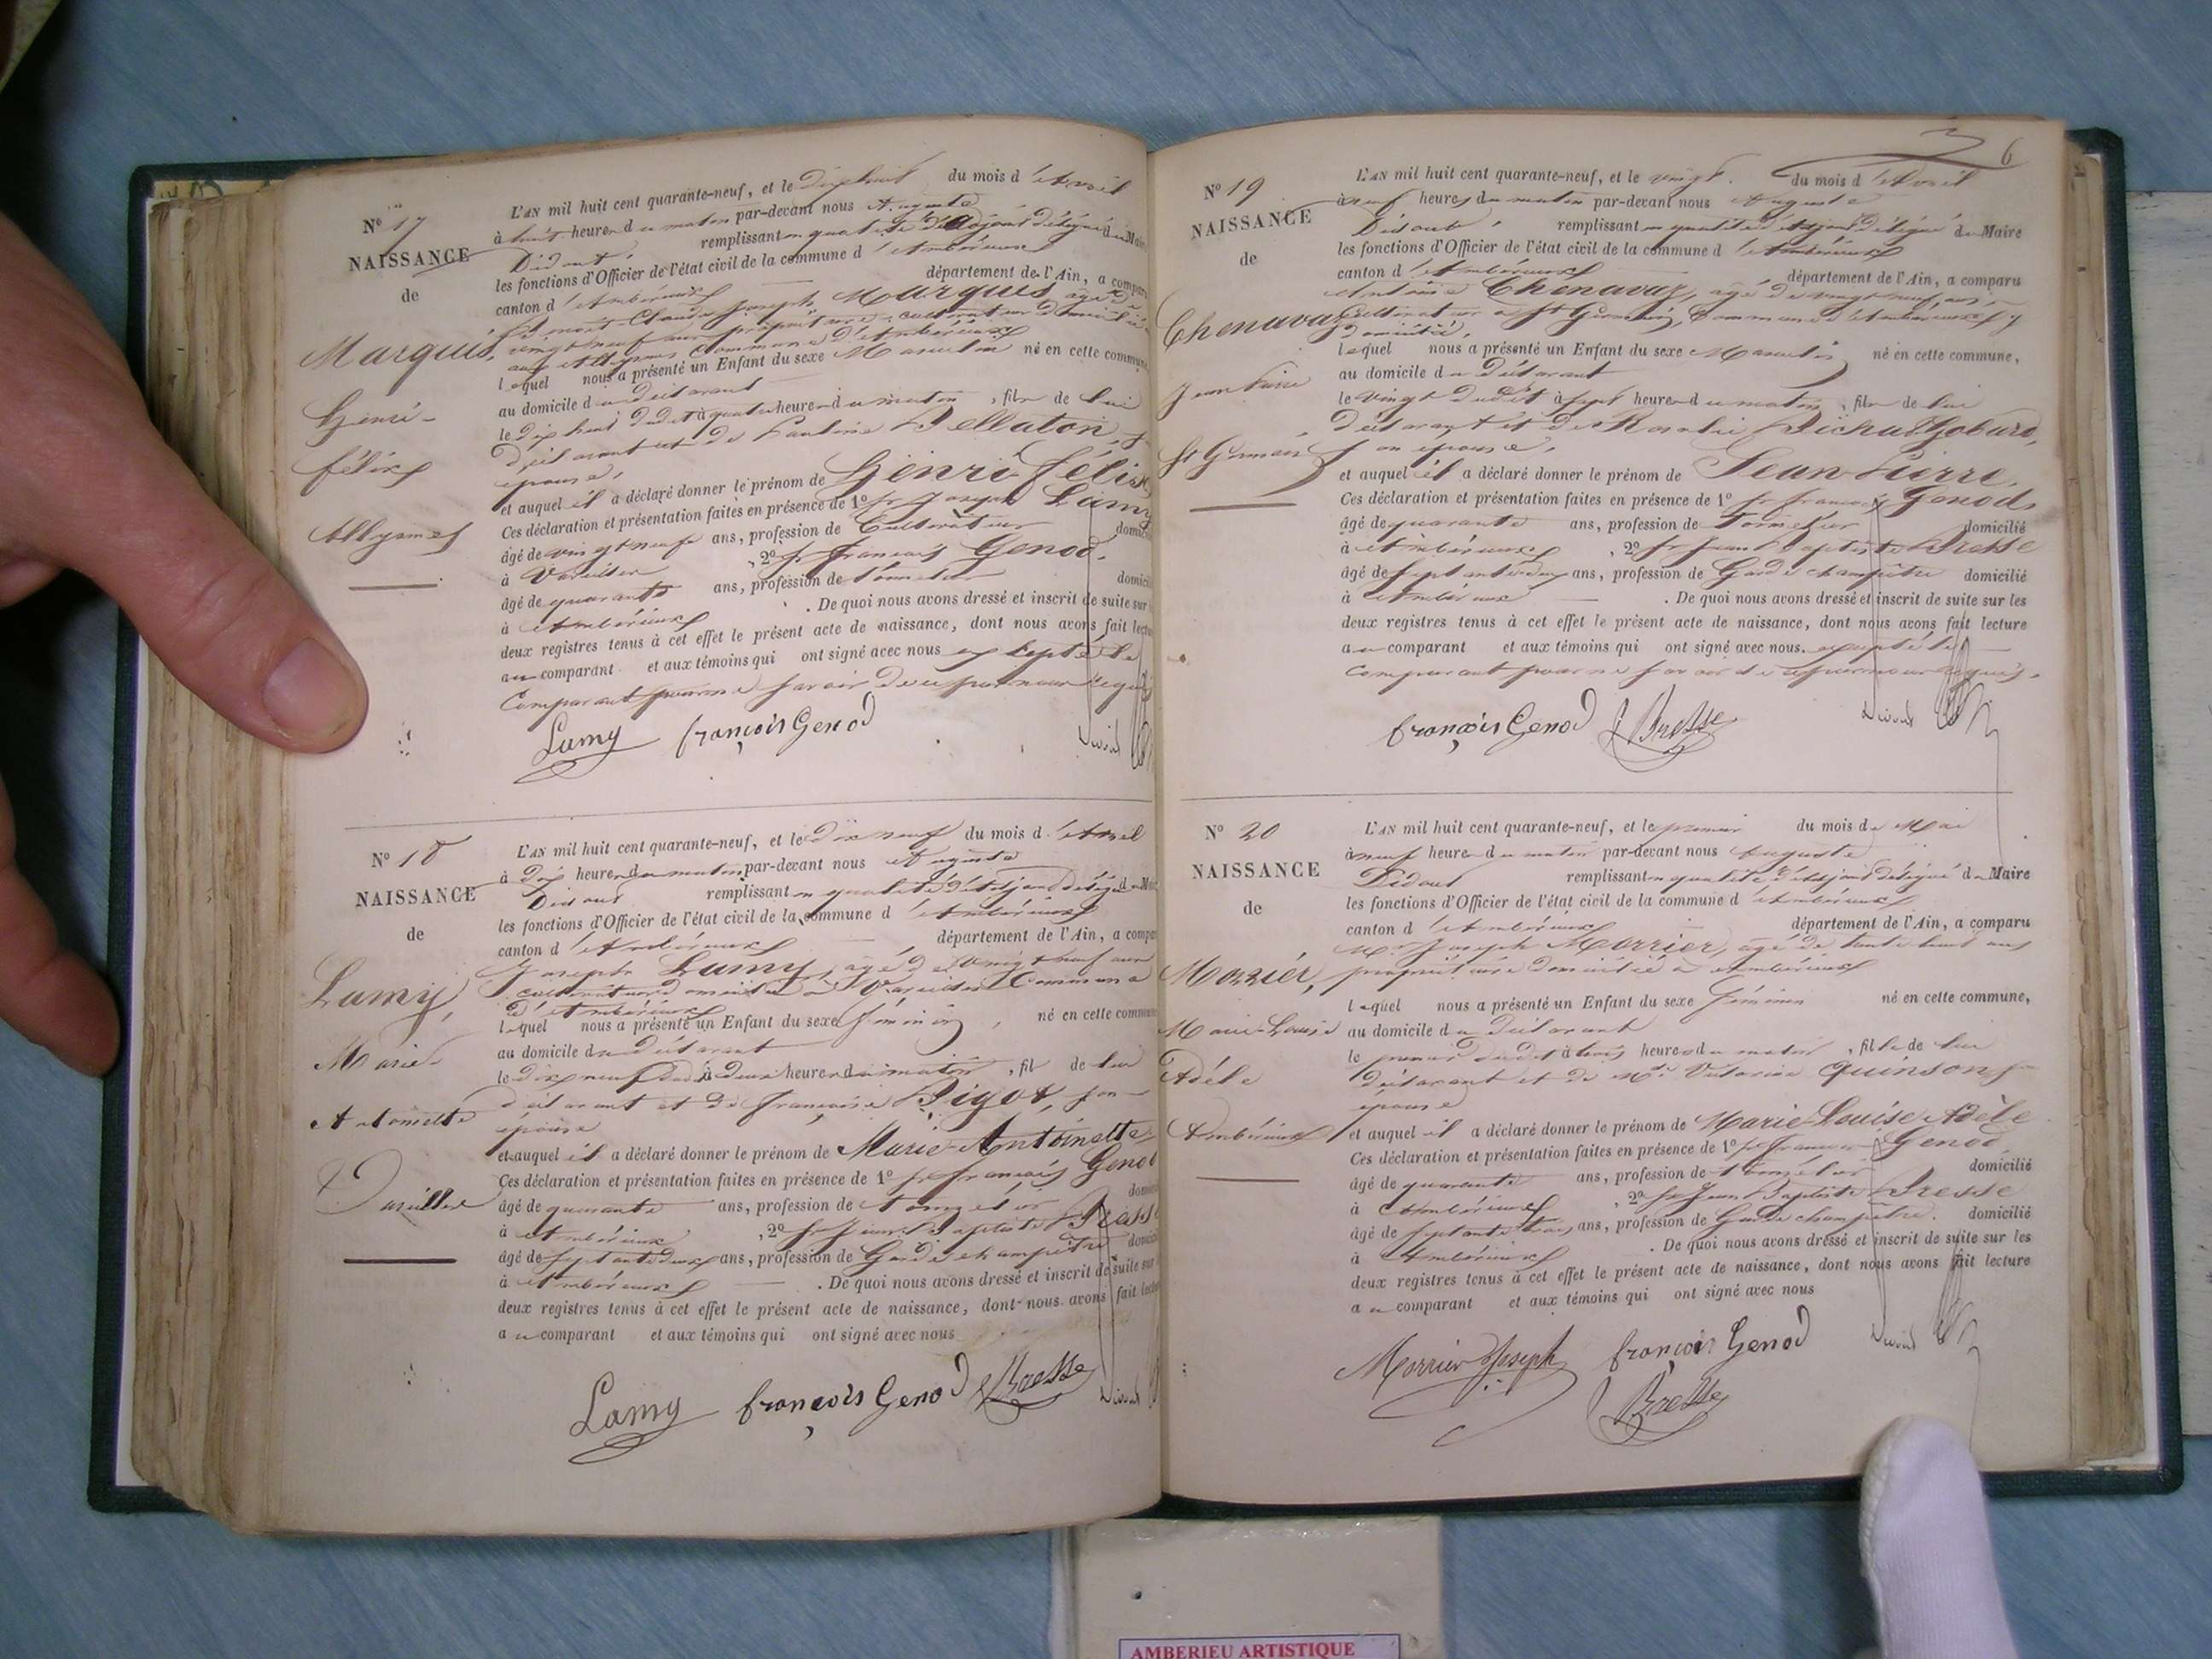 N° 17
NAISSANCE
de
Marquis,
henri-
félix
Allymes
L'AN mil huit cent quarante-neuf, et le dix huit du mois d'Avril
à huit heures du matin par-devant nous Auguste
Didout remplissant en qualité d'adjoint délégué du Maire
les fonctions d'Officier de l'état civil de la commune d'Ambérieux
canton d'Ambérieux département de l'Ain, a comparu
Claude Joseph Marquis âgé de
vingt neuf ans propriétaire cultivateur domicilié
aux Allymes Commune d'Ambérieux
lequel nous a présenté un Enfant du sexe Masculin né en cette commune
au domicile du déclarant
le dix huit dudit à quatre heures du matin, fils de lui
déclarant et de Pauline Pellaton, son
épouse,
et auquel il a déclaré donner le prénom de henri félix
Ces déclaration et présentation faites en présence de 1° sr Joseph Lamy
âgé de vingt neuf ans, profession de Cultivateur domicilié
à Vareilles, 2° sr françois Genod.
âgé de quarante ans, profession de tonnelier domicilié
à Ambérieux. De quoi nous avons dressé et inscrit de suite sur
deux registres tenus à cet effet le présent acte de naissance, dont nous avons fait lecture
au comparant et aux témoins qui ont signé avec nous excepté le
Comparant pour ne savoir de ce par nous requis
Lamy françois Genod Didout
N° 18
NAISSANCE
de
Lamy,
Marie
Antoinette
Vareilles
L'AN mil huit cent quarante-neuf, et le dix neuf du mois d'Avril
à dix heures du matin par-devant nous Auguste
Didout remplissant en qualité d'adjoint délégué du Maire
les fonctions d'Officier de l'état civil de la commune d'Ambérieux
canton d'Ambérieux département de l'Ain, a comparu
Joseph Lamy, âgé de vingt neuf ans
cultivateur domicilié à Vareilles Commune
d'Ambérieux
lequel nous a présenté un Enfant du sexe féminin, né en cette commune
au domicile du déclarant
le dix neuf dudit à deux heures du matin, fil de lui
déclarant et de françoise Bigot, son
épouse
et auquel il a déclaré donner le prénom de Marie-Antoinette
Ces déclaration et présentation faites en présence de 1° sr françois Genod
âgé de quarante ans, profession de tonnelier domicilié
à Ambérieux, 2° sr Jean Baptiste Bresse
âgé de septante deux ans, profession de Garde champêtre domicilié
à Ambérieux. De quoi nous avons dressé et inscrit de suite sur
deux registres tenus à cet effet le présent acte de naissance, dont nous avons fait lecture
au comparant et aux témoins qui ont signé avec nous
Lamy françois Genod J Bresse Didout
6
N° 19
NAISSANCE
de
Chenavaz
Jean Pierre
St Germain
L'AN mil huit cent quarante-neuf, et le vingt. du mois d'Avril
à neuf heures du matin par-devant nous Auguste
Didout remplissant en qualité d'adjoint délégué du Maire
les fonctions d'Officier de l'état civil de la commune d'Ambérieux
canton d'Ambérieux département de l'Ain, a comparu
Antoine Chenavaz, âgé de vingt neuf ans,
cultivateur à St Germain, Commune d'Ambérieux y
domicilié,
lequel nous a présenté un Enfant du sexe Masculin né en cette commune,
au domicile du déclarant
le vingt dudit à sept heures du matin, fils de lui
déclarant et de Rosalie
son épouse,
et auquel il a déclaré donner le prénom de Jean-Pierre,
Ces déclaration et présentation faites en présence de 1° sr françois Genod
âgé de quarante ans, profession de tonnelier domicilié
à Ambérieux, 2° sr Jean Baptiste Bresse
âgé de septante deux ans, profession de Garde champêtre domicilié
à Ambérieux. De quoi nous avons dressé et inscrit de suite sur les
deux registres tenus à cet effet le présent acte de naissance, dont nous avons fait lecture
au comparant et aux témoins qui ont signé avec nous. excepté le
comparant pour ne savoir de ce par nous requis,
françois Genod J Bresse Didout
N° 20
NAISSANCE
de
Morrier,
Marie-Louise
Adèle
Ambérieux
L'AN mil huit cent quarante-neuf, et le premier du mois de Mai
à neuf heures du matin par-devant nous Auguste
Didout remplissant en qualité d'adjoint délégué du Maire
les fonctions d'Officier de l'état civil de la commune d'Ambérieux
canton d'Ambérieux département de l'Ain, a comparu
Mr Joseph Morrier, âgé de trente huit ans
propriétaire domicilié à Ambérieux
lequel nous a présenté un Enfant du sexe féminin né en cette commune,
au domicile du déclarant
le premier dudit à trois heures du matin, fille de lui
déclarant et de Victorine Quinson, son
épouse
et auquel il a déclaré donner le prénom de Marie-Louise Adèle
Ces déclaration et présentation faites en présence de 1° sr françois Genod
âgé de quarante ans, profession de tonnelier domicilié
à Ambérieux, 2° sr Jean Baptiste Bresse
âgé de septante trois ans, profession de Garde champêtre. domicilié
à Ambérieux. De quoi nous avons dressé et inscrit de suite sur les
deux registres tenus à cet effet le présent acte de naissance, dont nous avons fait lecture
au comparant et aux témoins qui ont signé avec nous
Morrier Joseph françois Genod Didout
J Bresse
AMBERIEU ARTISTIQUE